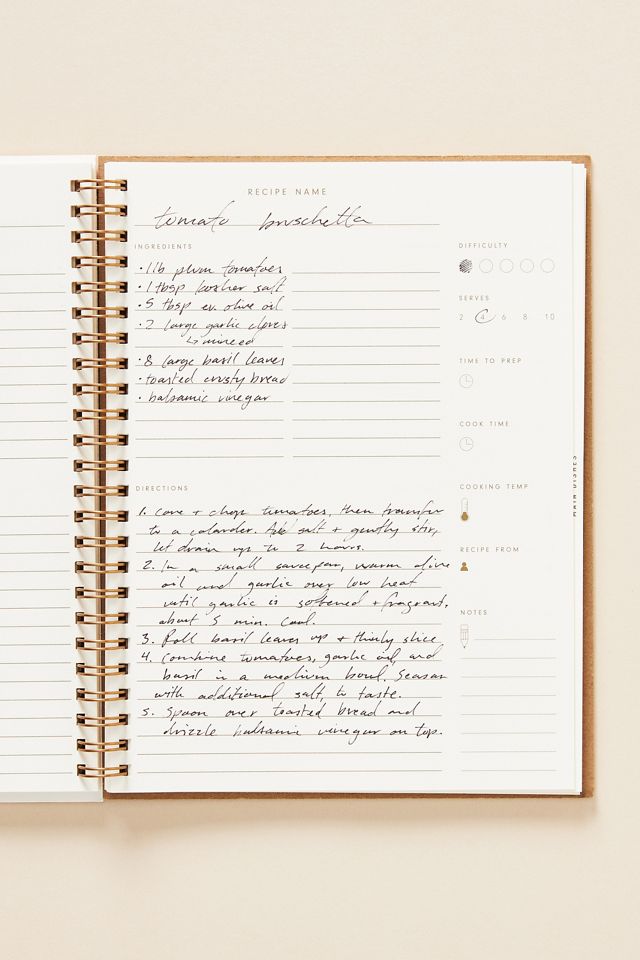 RECIPE NAME
tomato bruschetta
INGREDIENTS
· 1 lb plum tomatoes
· 1 tbsp kosher salt
· 5 tbsp ev. olive oil
· 2 large garlic cloves
↳ minced
· 8 large basil leaves
· toasted crusty bread
· balsamic vinegar
DIFFICULTY
SERVES
2 4 6 8 10
TIME TO PREP
COOK TIME
COOKING TEMP
RECIPE FROM
NOTES
DIRECTIONS
1. Core + chop tomatoes, then transfer
to a colander. Add salt + gently stir,
let drain up to 2 hours.
2. In a small saucepan, warm olive
oil and garlic over low heat
until garlic is softened + fragrant,
about 5 min. Cool.
3. Roll basil leaves up + thinly slice
4. Combine tomatoes, garlic oil, and
basil in a medium bowl. Season
with additional salt, to taste.
5. Spoon over toasted bread and
drizzle balsamic vinegar on top.